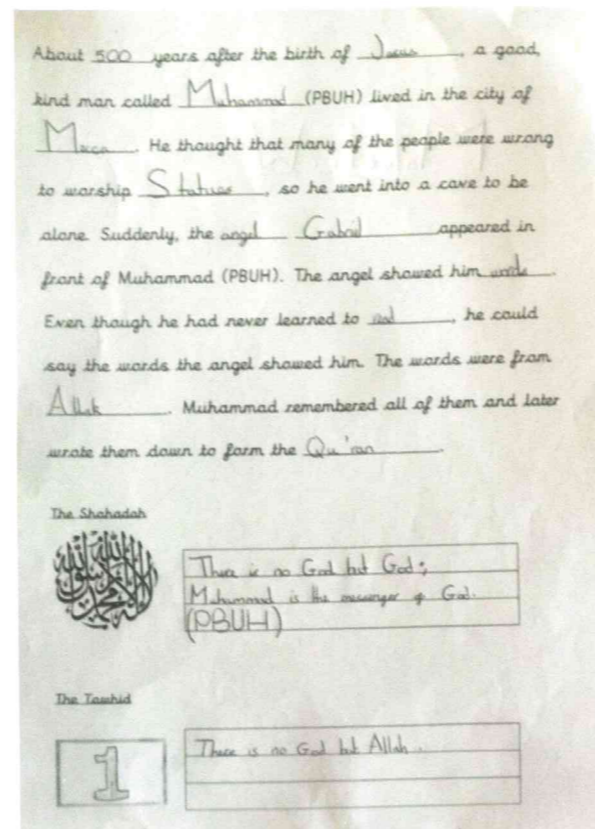 About 500 years after the birth of Jesus, a good,
kind man called Muhammad (PBUH) lived in the city of
Mecca. He thought that many of the people were wrong
to worship Statues, so he went into a cave to be
alone. Suddenly, the angel Gabriel appeared in
front of Muhammad (PBUH). The angel showed him words.
Even though he had never learned to read, he could
say the words the angel showed him. The words were from
Allah. Muhammad remembered all of them and later
wrote them down to form the Qu'ran.
The Shahadah
لا إله إلا الله محمد رسول الله
There is no God but God;
Muhammad is the messenger of God.
(PBUH)
The Tawhid
1
There is no God but Allah.